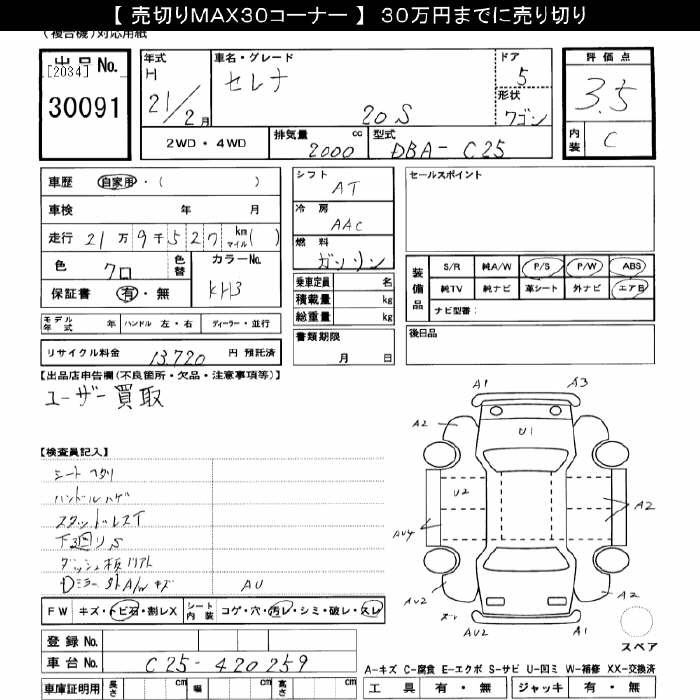 【 売切りMAX30コーナー 】 30万円までに売り切り
(複合機)対応用紙
出品 No.
[2034]
30091
年式
H
21/2月
車名・グレード
セレナ
20S
ドア
5
形状
ワゴン
2WD・4WD
排気量 2000 cc
型式 DBA- C25
評価点
3.5
内装 C
車歴 自家用・( )
車検 年 月
走行 21万9千527 km マイル( )
色 クロ 色替
カラーNo. KH3
保証書 有・無
モデル年式 年 ハンドル 左・右 ディーラー・並行
リサイクル料金 13,720 円 預託済
シフト AT
冷房 AAC
燃料 ガソリン
乗車定員 名
積載量 kg
総重量 kg
書類期限
月 日
セールスポイント
装備品
S/R 純A/W P/S P/W ABS
純TV 純ナビ 革シート 外ナビ エアB
ナビ型番:
後日品
【出品店申告欄(不良箇所・欠品・注意事項等)】
ユーザー買取
【検査員記入】
シート ヘタリ
ハンドルハゲ
スタッドレスT
下回りS
Dミラー 外A/W キズ AU
A1 A3
A2
U1
U2
A2
AU4
AU2
A2
AU2 A1
スペア
FW キズ・トビ石・割レX シート内装 コゲ・穴・汚レ・シミ・破レ・スレ
登録 No.
車台 No. C25-420259
車庫証明用 長さ cm 幅 cm 高さ cm
A-キズ C-腐食 E-エクボ S-サビ U-凹ミ W-補修 XX-交換済
工具 有・無 ジャッキ 有・無